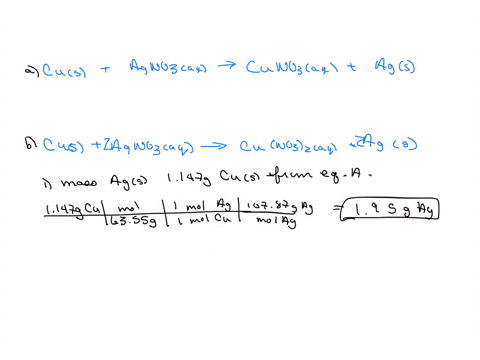 a) Cu(s) + AgNO3(aq) → CuNO3(aq) + Ag(s)
b) Cu(s) + 2AgNO3(aq) → Cu(NO3)2(aq) + 2Ag(s)
i) mass Ag(s) 1.147g Cu(s) from eq. A.
1.147g Cu | mol | 1 mol Ag | 107.87g Ag = 1.95 g Ag
63.55g | 1 mol Cu | mol Ag